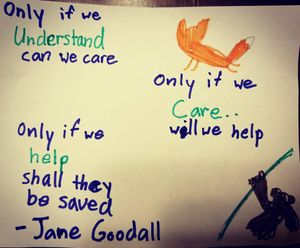 Only if we
Understand
can we care
Only if we
Care..
will we help
Only if we
help
shall they
be saved
- Jane Goodall